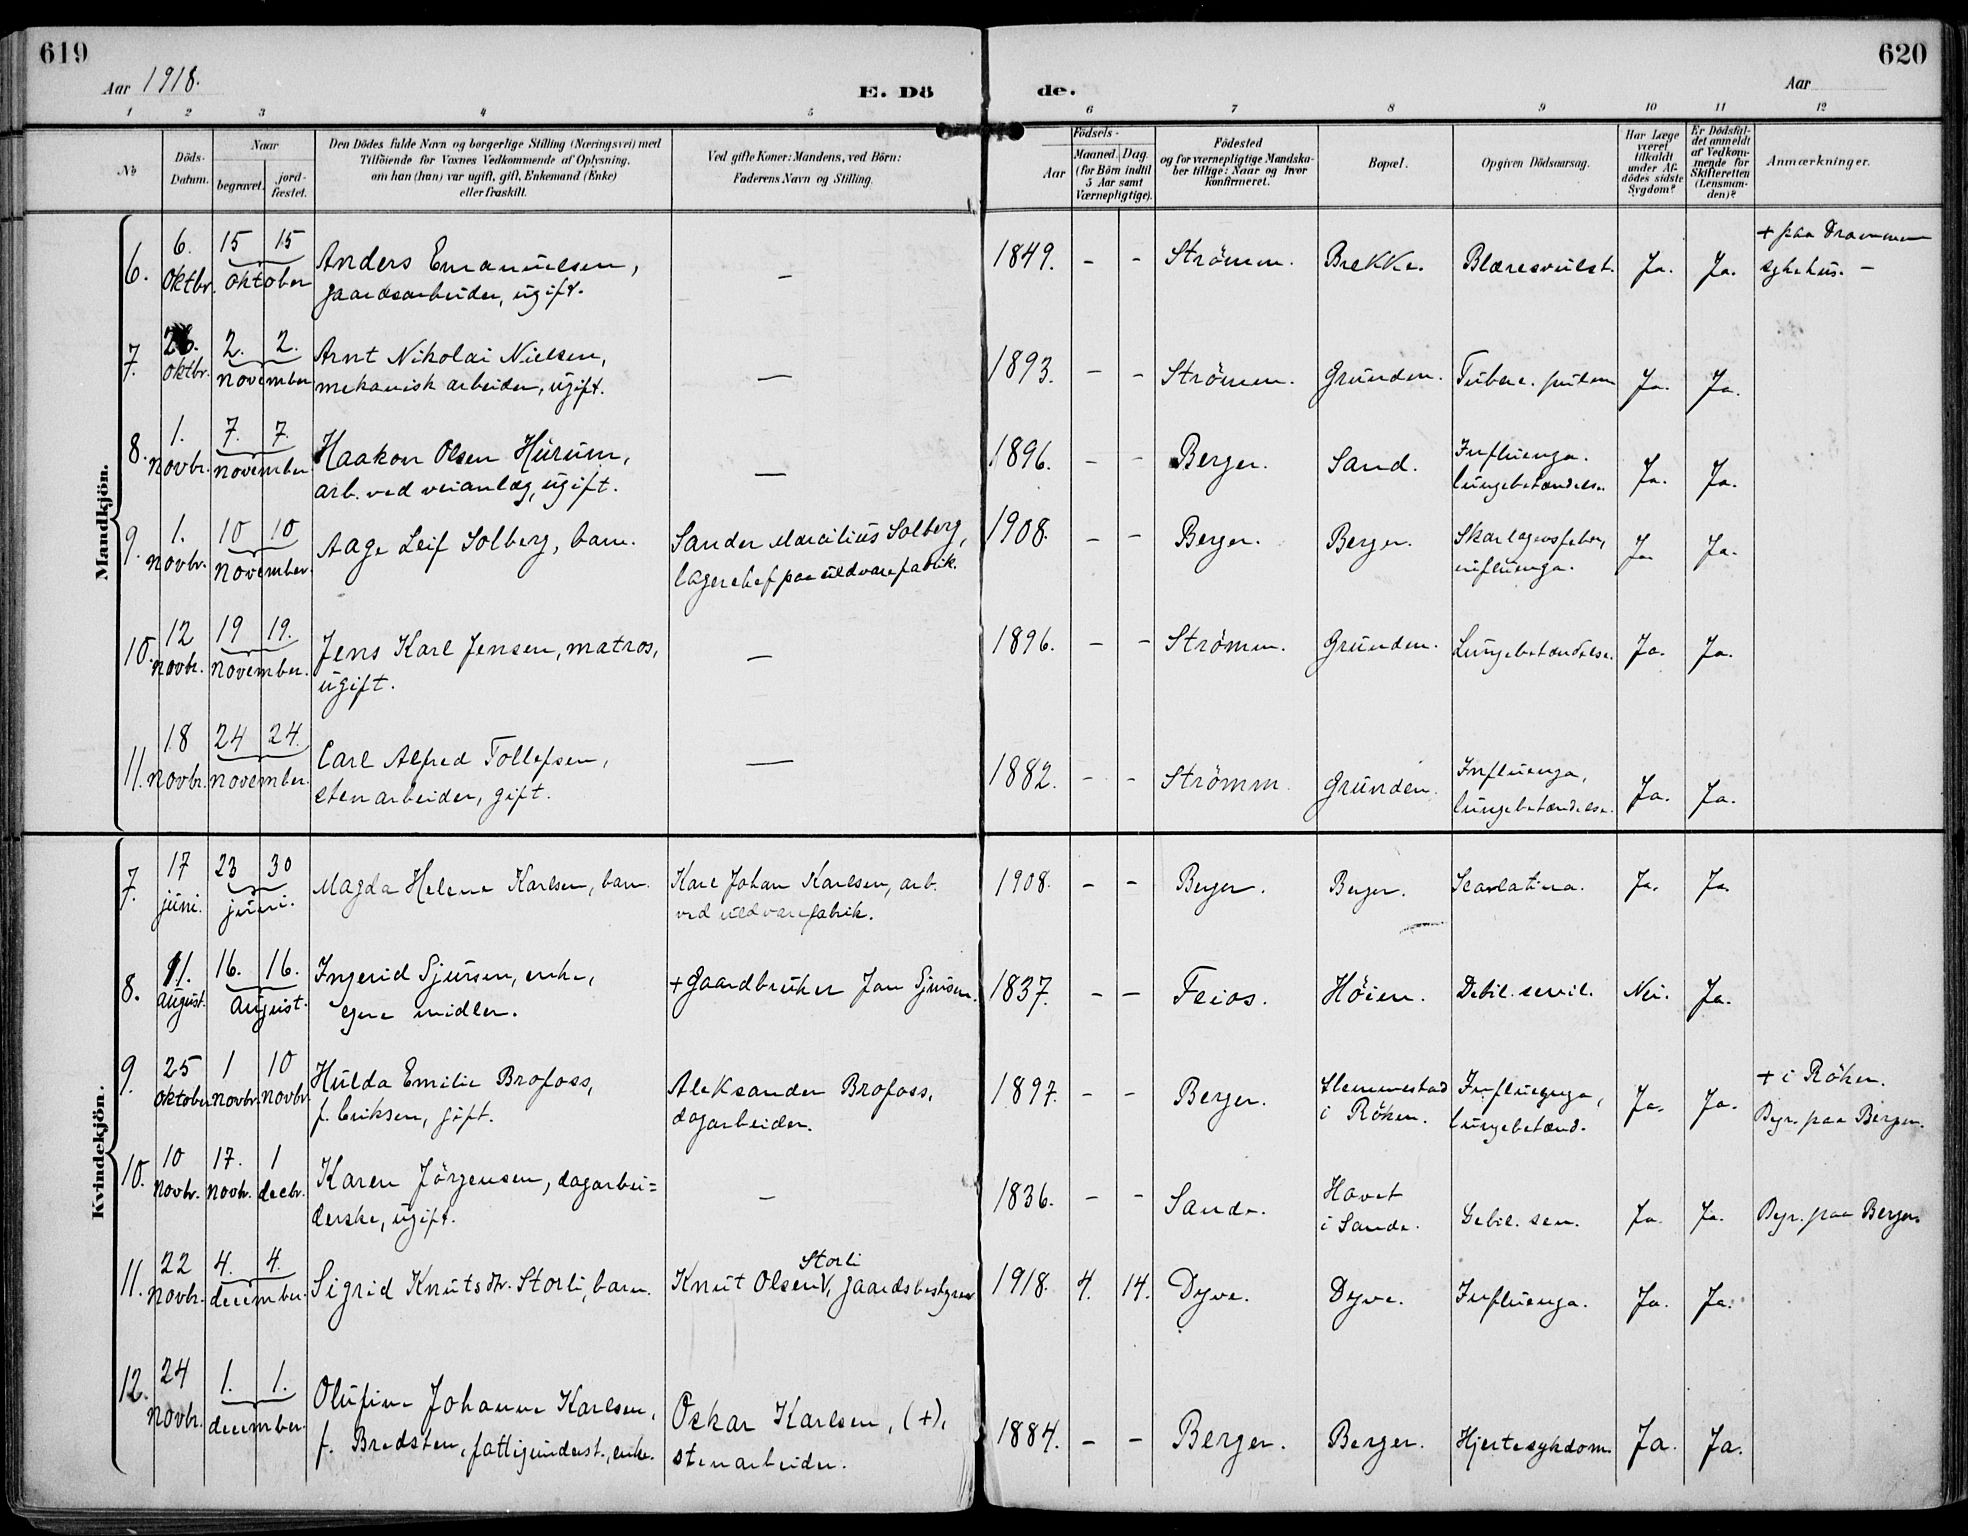 619
620
Aar 1918.
E. Dö
de.
Aar
1 2 3 4 5 6 7 8 9 10 11 12
No
Döds-Datum.
Naar
begravet.
jord-fæstet.
Den Dödes fulde Navn og borgerlige Stilling (Næringsvei) med
Tilföiende for Voxnes Vedkommende af Oplysning.
om han (hun) var ugift, gift, Enkemand (Enke)
eller fraskilt.
Ved gifte Koner: Mandens, ved Börn:
Faderens Navn og Stilling.
Födsels-
Aar
Maaned. Dag.
(for Börn indtil
5 Aar samt
Værnepligtige).
Födested
og for værnepligtige Mandska-
ber tillige: Naar og hvor
konfirmeret.
Bopæl.
Opgiven Dödsaarsag.
Har Læge
været
tilkaldt
under Af-
dödes sidste
Sygdom?
Er Dödsfal-
det anmeldt
af Vedkom-
mende for
Skifteretten
(Lensman-
den)?
Anmærkninger.
Mandkjön.
6. 6. 15 15 Anders Emanuelsen, – 1849. – – Strömm. Brekke. Blæresvulst. Ja. Ja. + paa Drammen
oktbr. oktober gaardsarbeider, ugift. sykehus. –
7. 26. 2. 2. Arnt Nikolai Nielsen, — 1893. – – Strömm. Grunden. Tuberc. pulm Ja. Ja.
oktbr. november mekanisk arbeider, ugift.
8. 1. 7. 7. Haakon Olsen Hurum, — 1896. – – Berger. Sand. Influenza. Ja. Ja.
novbr. november arb. ved veianlæg, ugift. lungebetændelse.
9. 1. 10 10 Aage Leif Solberg, barn. Sander Marcilius Solberg, 1908. – – Berger. Berger. Skarlagensfeber, Ja Ja.
novbr. november. lagerchef paa uldvarefabrik. influenza.
10. 12 19 19. Jens Karl Jensen, matros, — 1896. – – Strömm. Grunden. Lungebetændelse. Ja. Ja.
novbr. november. ugift.
11. 18 24 24. Carl Alfred Tollefsen, — 1882. – – Strömm. Grunden. Influenza, Ja. Ja.
novbr. november. stenarbeider, gift. lungebetændelse.
Kvindekjön.
7. 17 23 30 Magda Helene Karlsen, barn. Karl Johan Karlsen, arb. 1908. – – Berger. Berger. Scarlatina. Ja. Ja.
juni. juni. ved uldvarefabrik.
8. 11. 16. 16. Ingerid Sjursen, enke, + Gaardbruker Jan Sjursen. 1837. – – Feios. Höien. Debil. senil. Nei. Ja.
august. august. egne midler.
9. 25 1 10 Hulda Emilie Brofoss, Aleksander Brofoss, 1897. – – Berger. Slemmestad Influenza, Ja. Ja. + i Röken.
oktober novbr. novbr. f. Eriksen, gift. dagarbeider. i Röken. lungebetænd. Begr. paa Berger.
10. 10 17. 1 Karen Jörgensen, dagarbei= – 1836. – – Sande. Havet Debil. sen. Ja. Ja. Begr. paa Berger.
novbr. novbr. decbr. derske, ugift. i Sande.
11. 22 4. 4. Sigrid Knutsdtr. Storli, barn. Knut Olsen Storli, gaardsbestyrer 1918. 4. 14. Dyve. Dyve. Influenza. Ja. Ja.
novbr. december.
12. 24 1. 1. Olufine Johanne Karlsen, Oskar Karlsen, (+), 1884. – – Berger. Berger. Hjertesykdom. Ja. Ja.
novbr. december. f. Bredsten, fattigunderst., enke. stenarbeider.